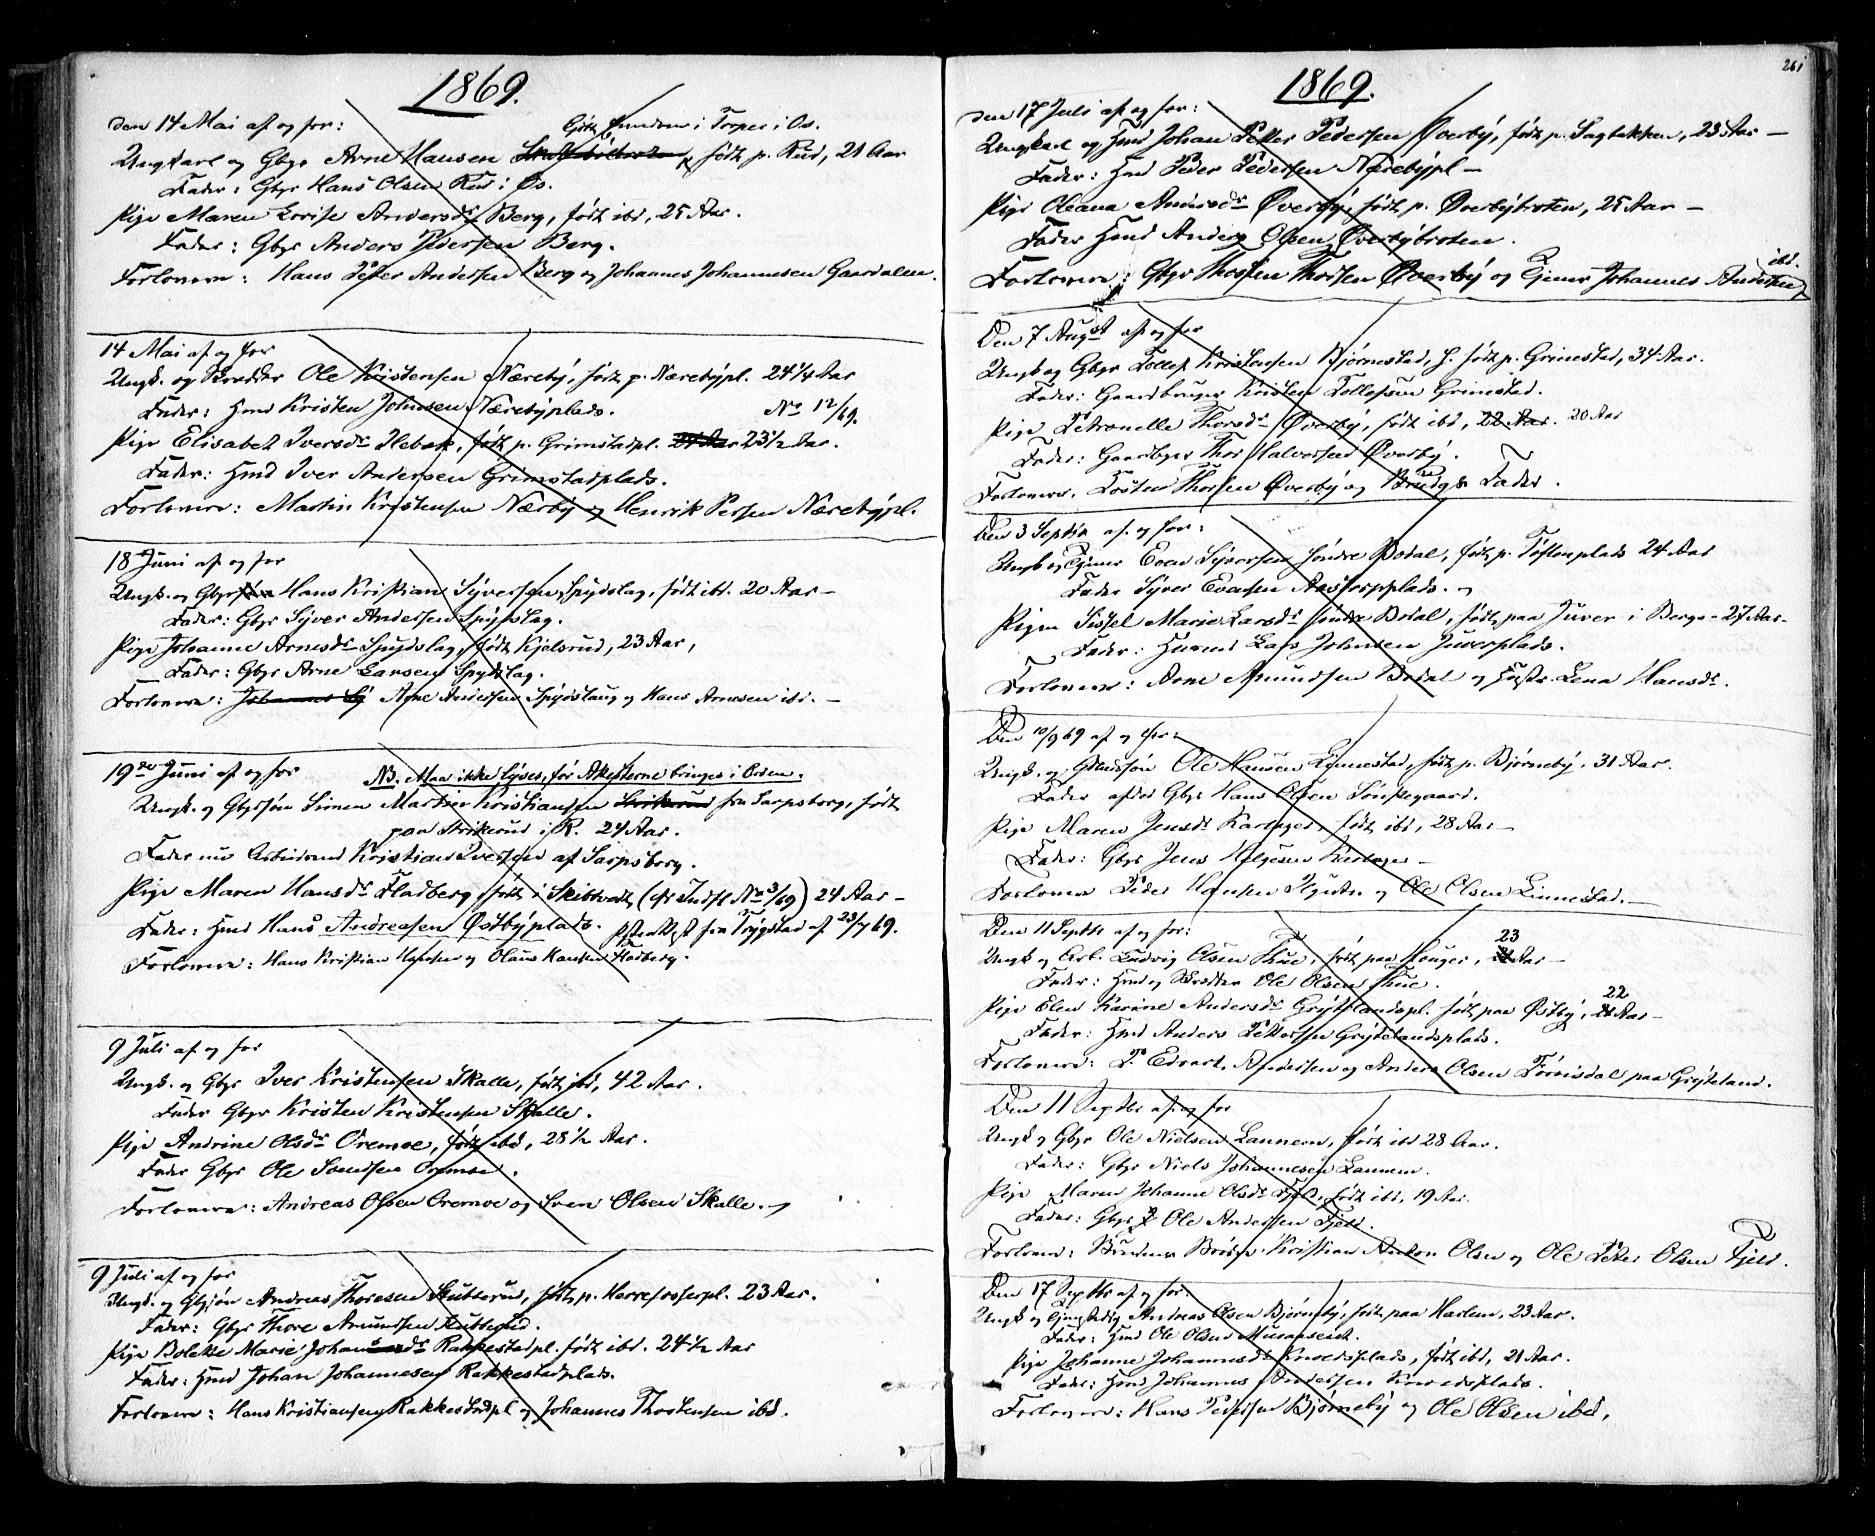 1869.
den 14 Mai af og for:
Gift Enkem i Torper i Os.
Ungkarl og Gbgr Arne Hansen født p. Rud, 21 Aar
Fader: Gbgr Hans Olsen Rud i Os.
Pige Maren Lovise Andersdr Berg, født ibd, 25 Aar.
Fader: Gbgr Anders Pedersen Berg.
Forlovere: Hans Peter Andersen Berg og Johannes Johannesen Gaardalen.
14 Mai af og for
Ungk. og Skrædder Ole Kristensen Næreby, født p. Nærebypl. 24 1/4 Aar
Fader: Hmd Kristen Johnsen Nærebyplads. No 12/69.
Pige Elisabet Iversdr Ilebæk, født p. Grimstadpl. 21 Aar 23 1/2 Aar.
Fader: Hmd Iver Andersen Grimstadplads.
Forlovere: Martin Kristensen Nærby og Henrik Persen Nærebypl.
18 Juni af og for
Ungk. og Gbgrsøn Hans Kristian Syversen Spydslag, født ibd. 20 Aar –
Fader: Gbgr Syver Andersen Spydslag.
Pige Johanne Arnesdr Spydslag, født Kjelsrud, 23 Aar,
Fader: Gbgr Arne Larsen Spydslag.
Forlovere: Arne Andersen Spydslaug og Hans Arnesen ibd. –
19de Juni af og for NB. Maa ikke lyses, før Attesterne bringes i Orden.
Ungk. og Gbgrsøn Simen Martin Kristiansen Strikerud fra Sarpsborg, født
paa Strikerud i R. 24 Aar.
Fader nu Arbeidsmd Kristian Iversen af Sarpsborg.
Pige Maren Hansdr Fladberg født i Skibtvedt (cfr Indfl No 3/69) 24 Aar –
Fader: Hmd Hans Andreasen Østbyplads. fra Trygstad af 23/4 69.
Forlovere: Hans Kristian Hansen og Olaus Hansen Fladberg.
9 Juli af og for
Ungk. og Gbgr Iver Kristensen Skalle, født ibd, 42 Aar.
Fader Gbgr Kristen Kristensen Skalle.
Pige Andrine Olsdr Oremoe, født ibd, 28 1/2 Aar.
Fader Gbgr Ole Svendsen Oremoe.
Forlovere: Andreas Olsen Oremoe og Sven Olsen Skalle.
9 Juli af og for
Ungk. og Gbgsøn Andreas Thoresen Kubberud, født p. Herrefosserpl. 23 Aar.
Fader: Gbgr Thore Amundsen Kubberud.
Pige Bolette Marie Johansdr Rakkestadpl. født ibd. 24 1/2 Aar
Fader: Hmd Johan Johannesen Rakkestadplads.
Forlovere: Hans Kristiansen Rakkestadpl og Johannes Thostensen ibd.
261
1869.
den 17 Juli af og for:
Ungkarl og Hmd Johan Petter Pedersen Øverby, født p. Sagbakken, 23 Aar –
Fader: Hmd Peder Pedersen Nærebypl –
Pige Oleana Andersdr Øverby, født p. Øverbybraten, 25 Aar –
Fader Hmd Anders Olsen Øverbybraten.
Forlovere: Gbgr Thosten Thorsen Øverby og Tjener Johannes Andersen ibd.
Den 7 August af og for
Ungk og Gbgr Tollef Kristensen Bjørnestad, født p. Grimstad, 34 Aar.
Fader: Gaardbruger Kristen Tollefsen Grimstad.
Pige Petronelle Thorsdr Øverby, født ibd, 22 Aar. 20 Aar
Fader: Gaardbgr Thor Halvorsen Øverby.
Forlovere, Tosten Thorsen Øverby og Brudgs Fader.
Den 3 Septbr af og for:
Ungk og Tjener Even Syversen søndre Bodal, født p. Toftenplads 24 Aar
Fader Syver Evensen Aastorpplads.
Pigen Sissel Marie Larsdr søndre Bodal, født paa Juver i Berge – 27 Aar –
Fader: Husmd Lars Johnsen Juverplads.
Forlovere: Arne Amundsen Bodal og Hustr. Lena Hansdr.
Den 10/9 69 af og for:
Ungk. og Gmdssøn Ole Hansen Lynnestad, født p. Bjørneby, 31 Aar.
Fader afdød Gbgr Hans Olsen Sønstegaard.
Pige Maren Jensdr Karlager, født ibd, 28 Aar –
Fader: Gbgr Jens Helgesen Karlager –
Forlovere Peder Hansen og Ole Olsen Linnestad.
Den 11 Septbr af og for:
Ungk og Arb. Ludvig Olsen Thue, født paa Houger, 23 Aar –
Fader: Hmd og Skrædder Ole Olsen Thue.
Pige Elen Karine Andersdr Grytelandspl. født paa Østby, 22 Aar –
Fader: Hmd Anders Pettersen Grytelandsplads.
Forlovere: P. Edvart. Andersen og Anders Olsen Tørrisdal paa Gryteland.
Den 11 Septbr af og for
Ungk og Gbgr Ole Nielsen Lannem, født ibd 28 Aar.
Fader: Gbgr Niels Johannesen Lannem.
Pige Maren Johanne Olsdr Fjeld, født ibd, 19 Aar.
Fader: Gbgr Ole Andersen Fjeld.
Forlovere: Brudens Brødre Kristian Anton Olsen og Ole Peter Olsen Fjeld.
Den 17 Septbr af og for
Ungk og Andreas Olsen Bjørneby, født paa Harlem, 23 Aar.
Fader: Hmd Ole Olsen Museuseiet.
Pige Johanne Johannesdr Knoedsplads, født ibd, 21 Aar.
Fader: Hmd Johannes Andersen Knoedsplads.
Forlovere: Hans Pedersen Bjørneby og Ole Olsen ibd.